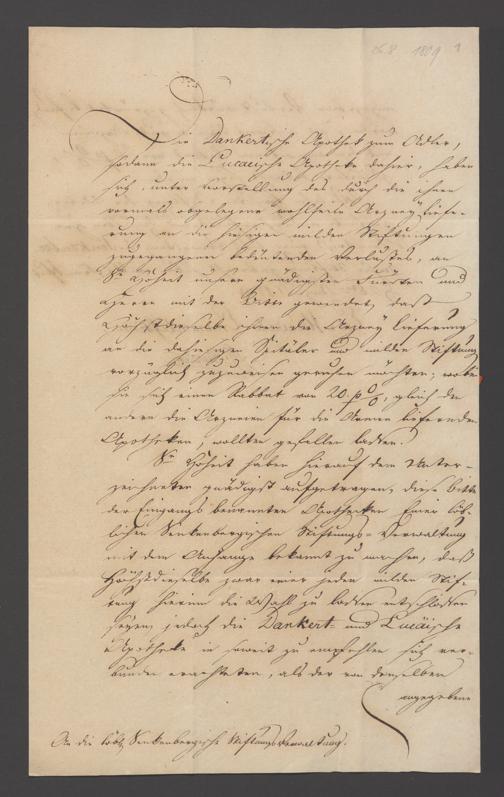 26.8 1809 1
Die Dankertsche Apothek zum Adler,
sodann die Lucaeische Apotheke dahier, haben
sich, unter Vorstellung des durch die ihnen
vormals abgelegene wohlfeile Arzneyliefe-
rung an die hiesigen milden Stiftungen
zugegangenen bedeutenden Verlustes, an
Sr Hoheit unsern gnädigsten Fürsten und
Herrn mit der Bitte gewendet, dass
Höchstdieselbe ihnen die Arzney lieferung
an die dahiesigen Spitäler und milden Stiftung
vorzüglich zuzuweisen geruhen mochten; wobei
sie sich einen Rabbat von 20. p C, gleich den
andern die Arzneien für die Armen liefernden
Apotheken, wollten gefallen lassen.
Sr Hoheit haben hierauf dem Unter-
zeichneten gnädigst aufgetragen, diese bitte
der Eingangs benannten Apotheken Einer löb-
lichen Senkenbergischen Stiftungs-Verwaltung
mit dem Anhange bekannt zu machen, daß
Höchstdieselbe zwar einer jeden milden Stif-
tung hierinn die Wahl zu lassen entschlossen
seyen, jedoch die Dankert- und Lucäische
Apotheke in soweit zu empfehlen sich ver-
bunden erachteten, als der von denselben
angegebene
An die löbl. Senkenbergische Stiftungs Verwaltung.